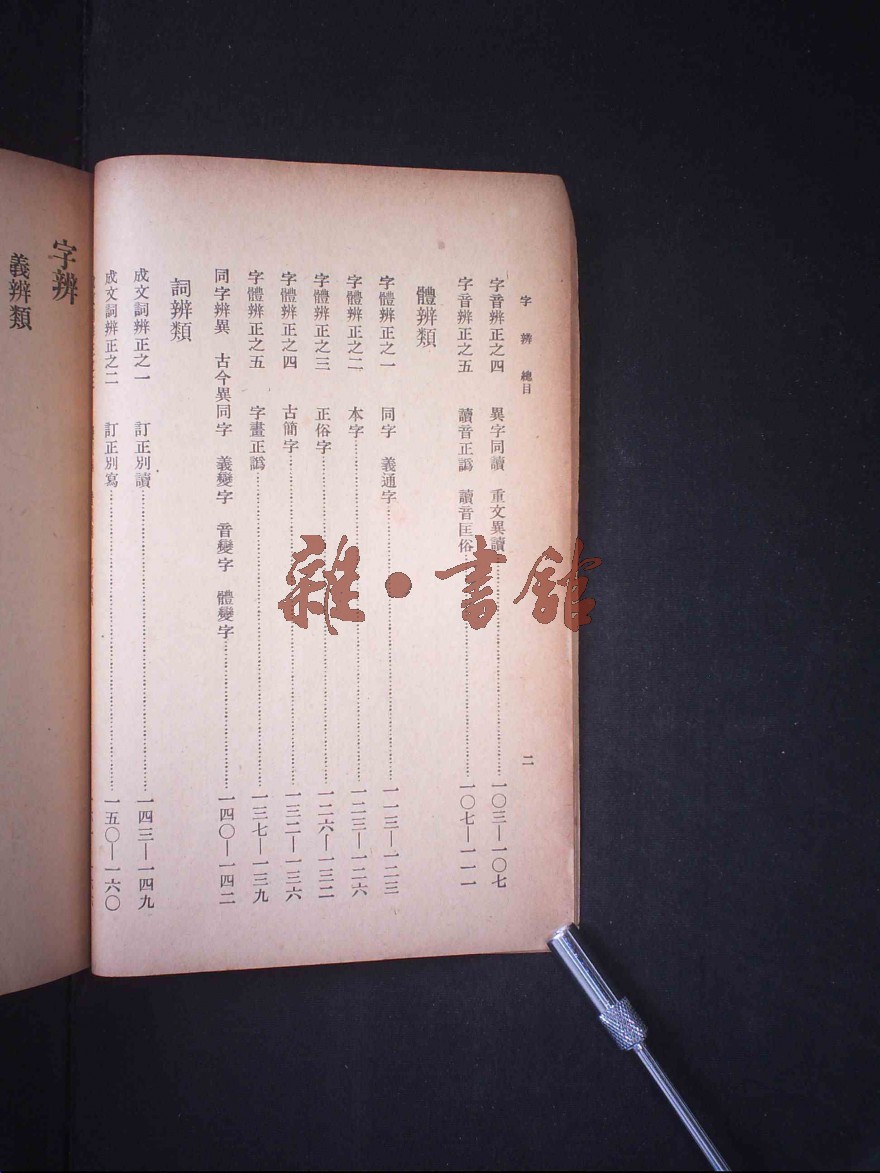 字辨 總目 二
字音辨正之四 異字同讀 重文異讀 一〇三—一〇七
字音辨正之五 讀音正譌 讀音匡俗 一〇七—一一一
體辨類
字體辨正之一 同字 義通字 一一三—一二三
字體辨正之二 本字 一二三—一二六
字體辨正之三 正俗字 一二六—一三二
字體辨正之四 古簡字 一三二—一三六
字體辨正之五 字畫正譌 一三七—一三九
同字辨異 古今異同字 義變字 音變字 體變字 一四〇—一四二
詞辨類
成文詞辨正之一 訂正別讀 一四三—一四九
成文詞辨正之二 訂正別寫 一五〇—一六〇
字辨
義辨類
雜·書館